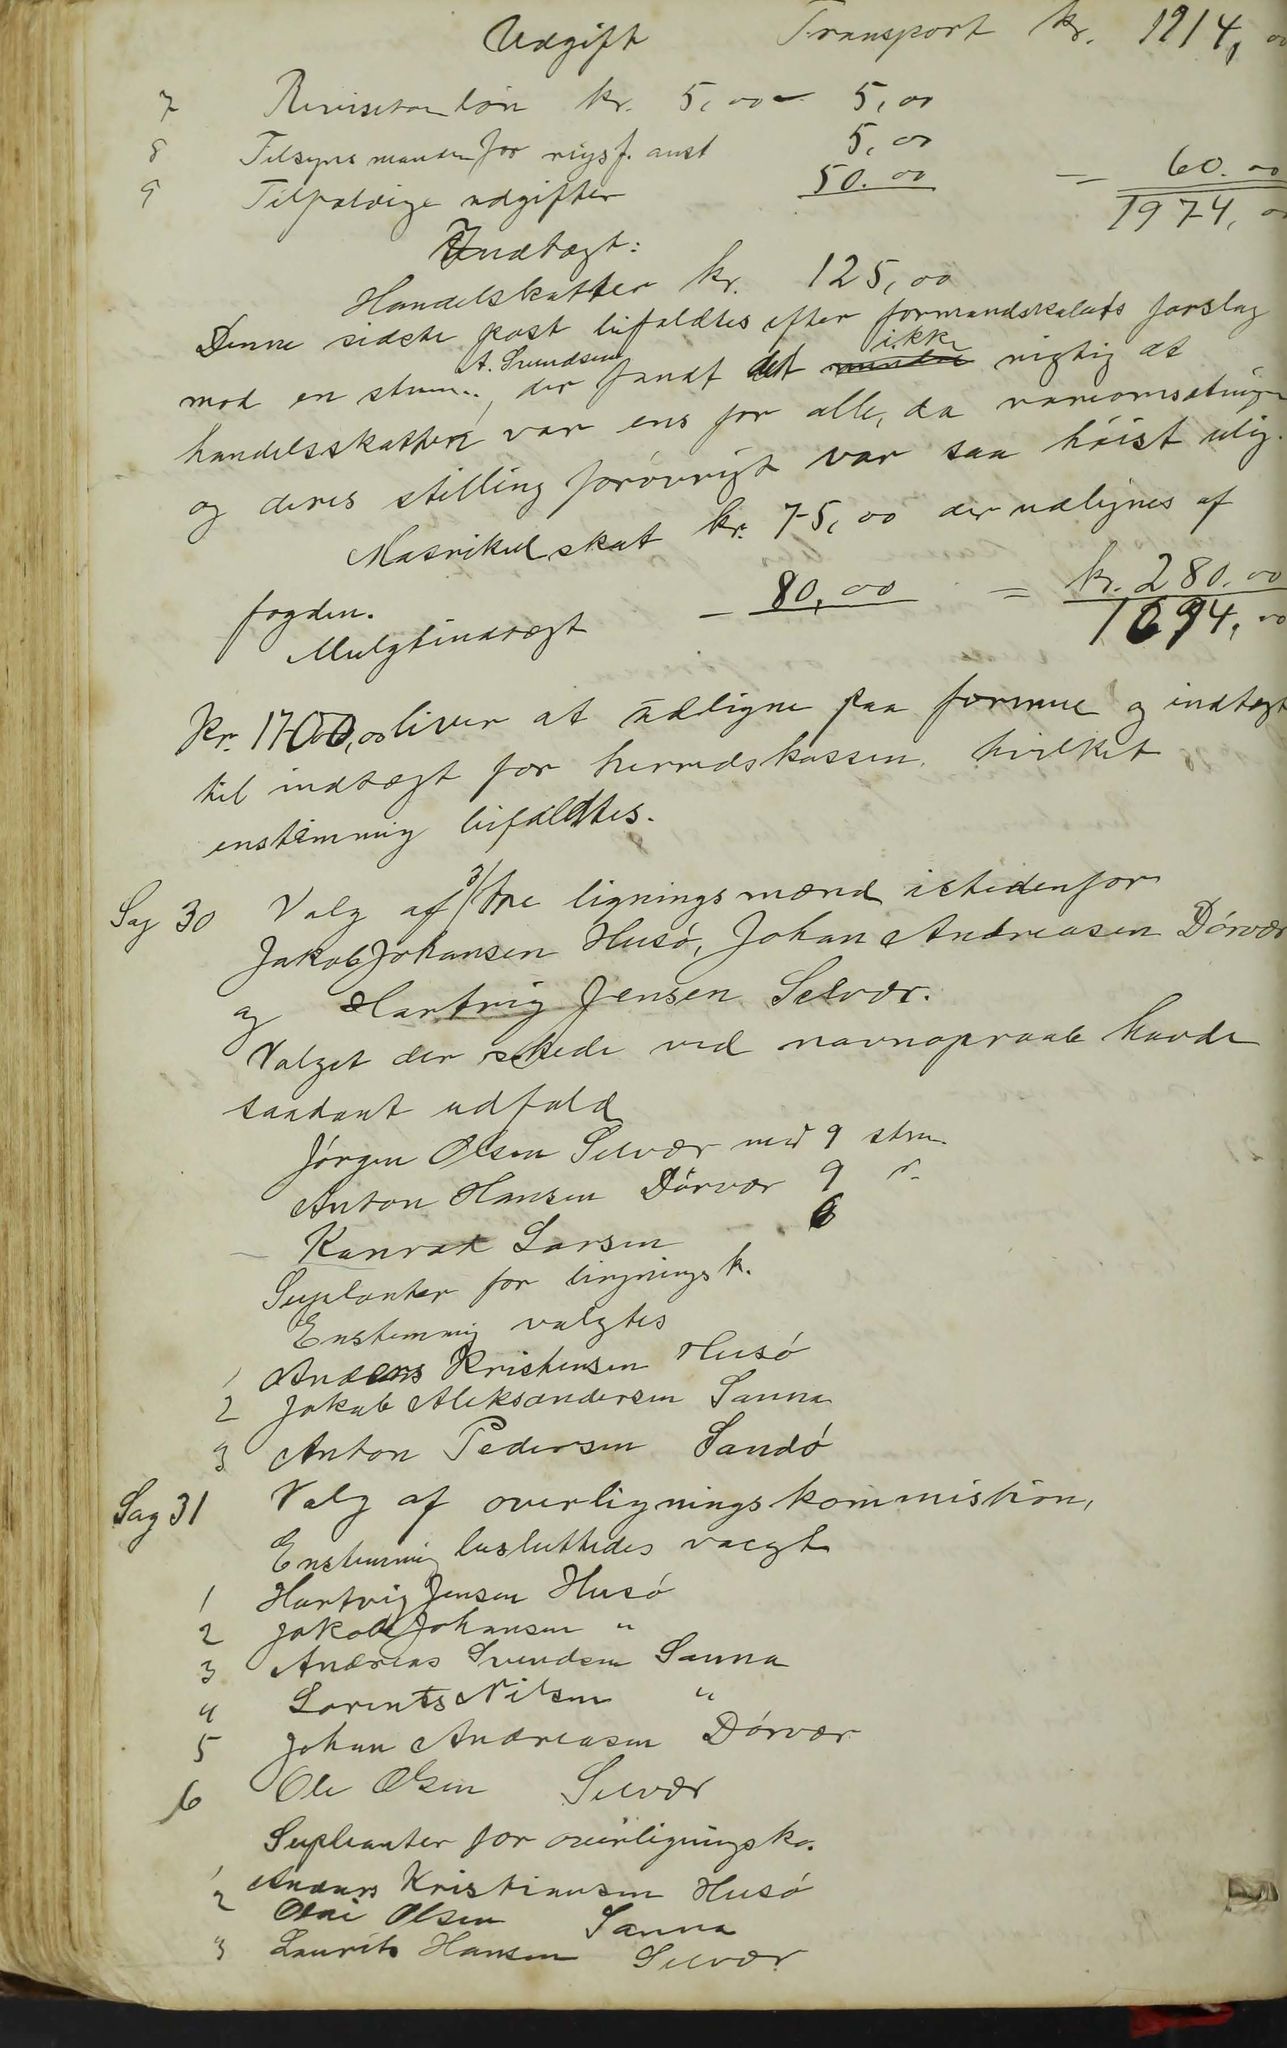 Udgift Transport kr. 1914,00
7 Revisorløn kr. 5,00 5,00
8 Tilsynsmanden for 5,00
9 Tilfældige udgifter 50.00 = 60.00
1974,00
Indtægt:
Handelskatter kr. 125,00
Denne sidste post bifaldtes efter formandskabets forslag
mod en stem.. A. Svendsen, der fandt det ikke rigtig at
handelsskatten var ens for alle, da vareomsetningen
og deres stilling forøvrigt var saa høist ulig.
Matrikulskat kr. 75,00 der udlignes af
fogden.
Mulgtindtægt – 80,00 = kr. 280.00
1694,00
Kr. 1700,00 bliver at udligne paa formue og indtægt
til indtægt for herredskassen, hvilket
enstemmig bifaldtes.
Sag 30 Valg af 3/tre ligningsmænd istedenfor
Jakob Johansen Husø, Johan Andreasen Dørvær
og Hartvig Jensen Selvær.
Valget der skede ved navnopraab havde
saadant udfald
Jørgen Olsen Selvær med 9 stm.
Anton Hansen Dørvær 9 "
Konrad Larsen 6
Suplanter for ligningsk.
Enstemmig valgtes
1 Anders Kristensen Husø
2 Jakob Aleksandersen Sanna
3 Anton Pedersen Sandø
Sag 31 Valg af overligningskommistion,
Enstemmig besluttedes valgt
1 Hartvig Jensen Husø
2 Jakob Johansen "
3 Andreas Svendsen Sanna
4 Lorents Nilsen "
5 Johan Andreasen Dørvær
6 Ole Olsen Selvær
Supleanter for overligningsko.
1 Anders Kristiansen Husø
2 Olai Olsen Sanna
3 Laurits Hansen Selvær